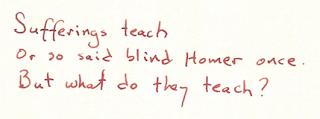 Sufferings teach
Or so said blind Homer once.
But what do they teach?